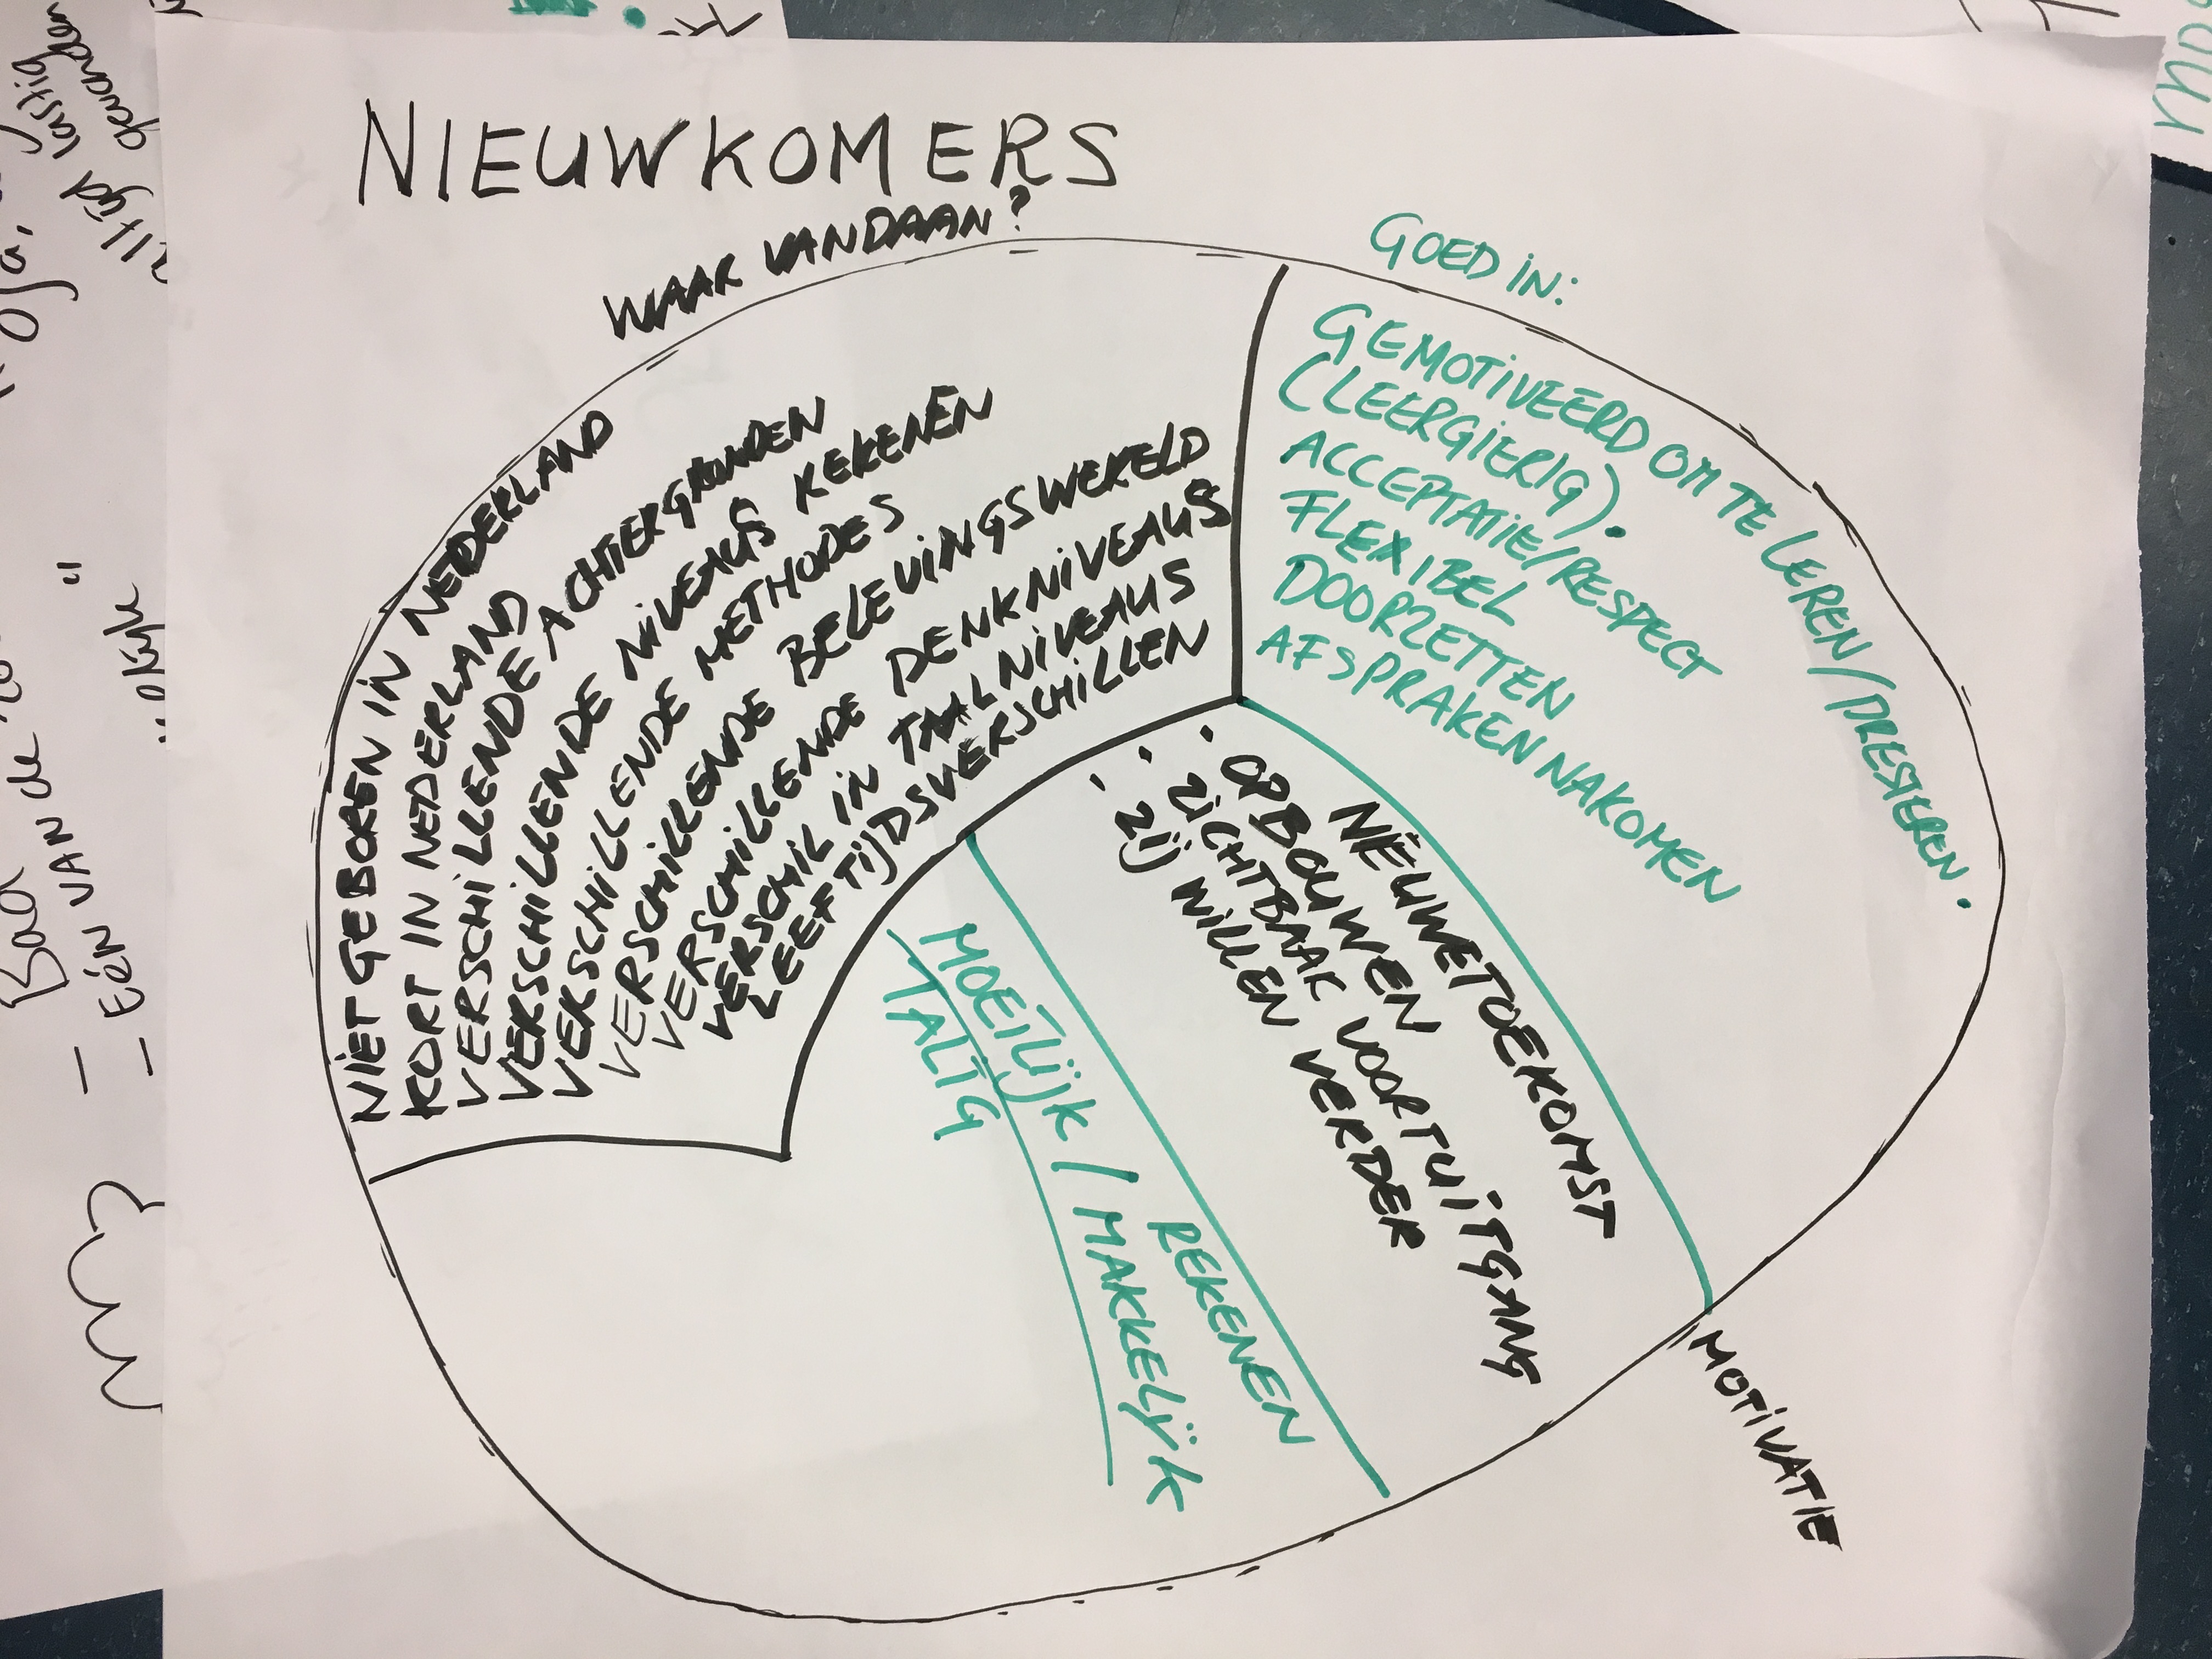 NIEUWKOMERS
WAAR VANDAAN?
NIET GEBOREN IN NEDERLAND
KORT IN NEDERLAND
VERSCHILLENDE ACHTERGRONDEN
VERSCHILLENDE NIVEAUS REKENEN
VERSCHILLENDE METHODES
VERSCHILLENDE BELEVINGSWERELD
VERSCHILLENDE DENKNIVEAUS
VERSCHIL IN TAALNIVEAUS
LEEFTIJDSVERSCHILLEN
GOED IN:
GEMOTIVEERD OM TE LEREN/PRESTEREN.
(LEERGIERIG).
ACCEPTATIE/RESPECT
FLEXIBEL
DOORZETTEN
AFSPRAKEN NAKOMEN
MOTIVATIE
NIEUWE TOEKOMST
• OPBOUWEN
• ZICHTBAAR VOORTUITGANG
• ZIJ WILLEN VERDER
REKENEN
MOEILIJK / MAKKELIJK
TALIG
altijd lastig
geworden
EÉN VAN de